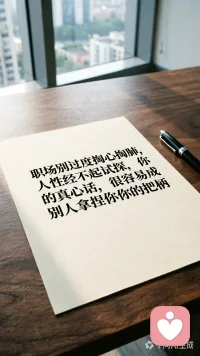 职场别过度掏心掏肺，
人性经不起试探，你
的真心话，很容易成
别人拿捏你你的把柄